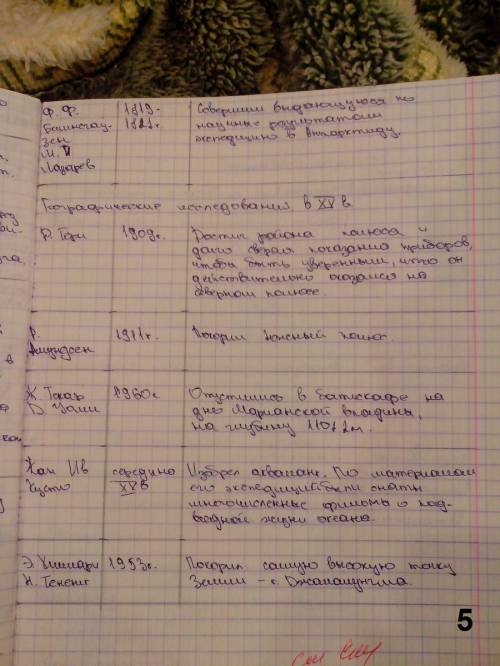 Ф. Ф. 1819- Совершили выдающуюся по
Беллинсгау- 1821г. научные результатам
зен экспедицию в Антарктиду.
М. П
Лазарев
Географические исследования в XV в.
Р. Пери 1909г. Достиг района полюса и
дало сверял показания приборов,
чтобы быть уверенным, что он
действительно оказался на
Северном полюсе.
Р. 1911г. Покорил Южный полюс.
Амундсен
Ж. Пикар 1960г. Опустились в батискафе на
Д. Уолш дно Марианской впадины,
на глубину 11022м.
Жак Ив середина Изобрел акваланг. По материалам
Кусто XV в его экспедиций были сняты
многочисленные фильмы о под-
водной жизни океана.
Э. Хиллари 1953г. Покорил самую высокую точку
Н. Тенсинг Земли – г. Джомолунгма.
5